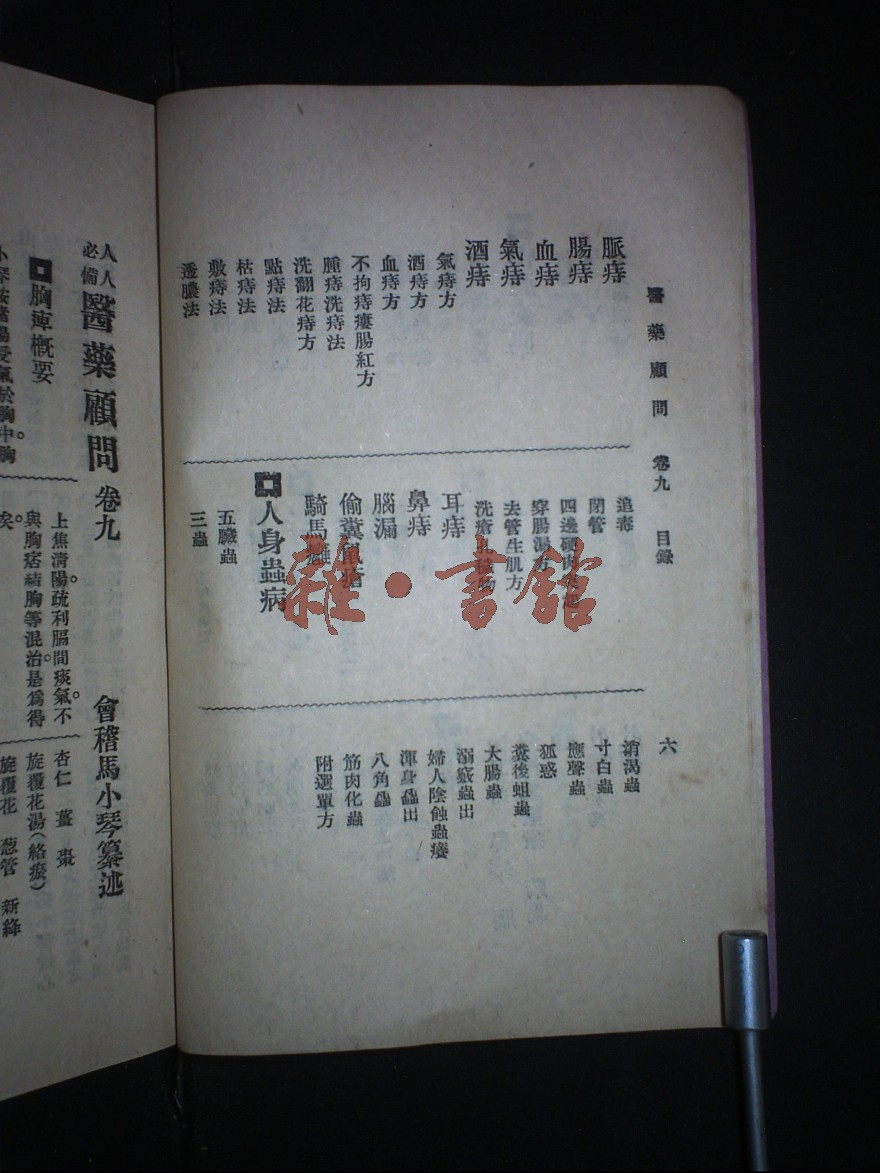 醫藥顧問 卷九 目錄 六
脈痔
腸痔
血痔
氣痔
酒痔
氣痔方
酒痔方
血痔方
不拘痔瘻腸紅方
腫痔洗痔法
洗翻花痔方
點痔法
枯痔法
敷痔法
透膿法
追毒
閉管
四邊硬肉突起
穿腸漏方
去管生肌方
洗瘡
耳痔
鼻痔
腦漏
偷糞鼠瘡
騎馬癰
人身蟲病
五臟蟲
三蟲
消渴蟲
寸白蟲
應聲蟲
狐惑
糞後蛆蟲
大腸蟲
溺竅蟲出
婦人陰蝕蟲癢
渾身蟲出
八角蟲
筋肉化蟲
附選單方
人人必備醫藥顧問 卷九
會稽馬小琴纂述
胸痺概要
於胸中。胸
上焦清陽。疏利膈間痰氣。不
與胸痞結胸等混治。是爲得
矣。
杏仁 薑 棗
旋覆花湯(絡瘀)
旋覆花 葱管 新絳
雜·書館